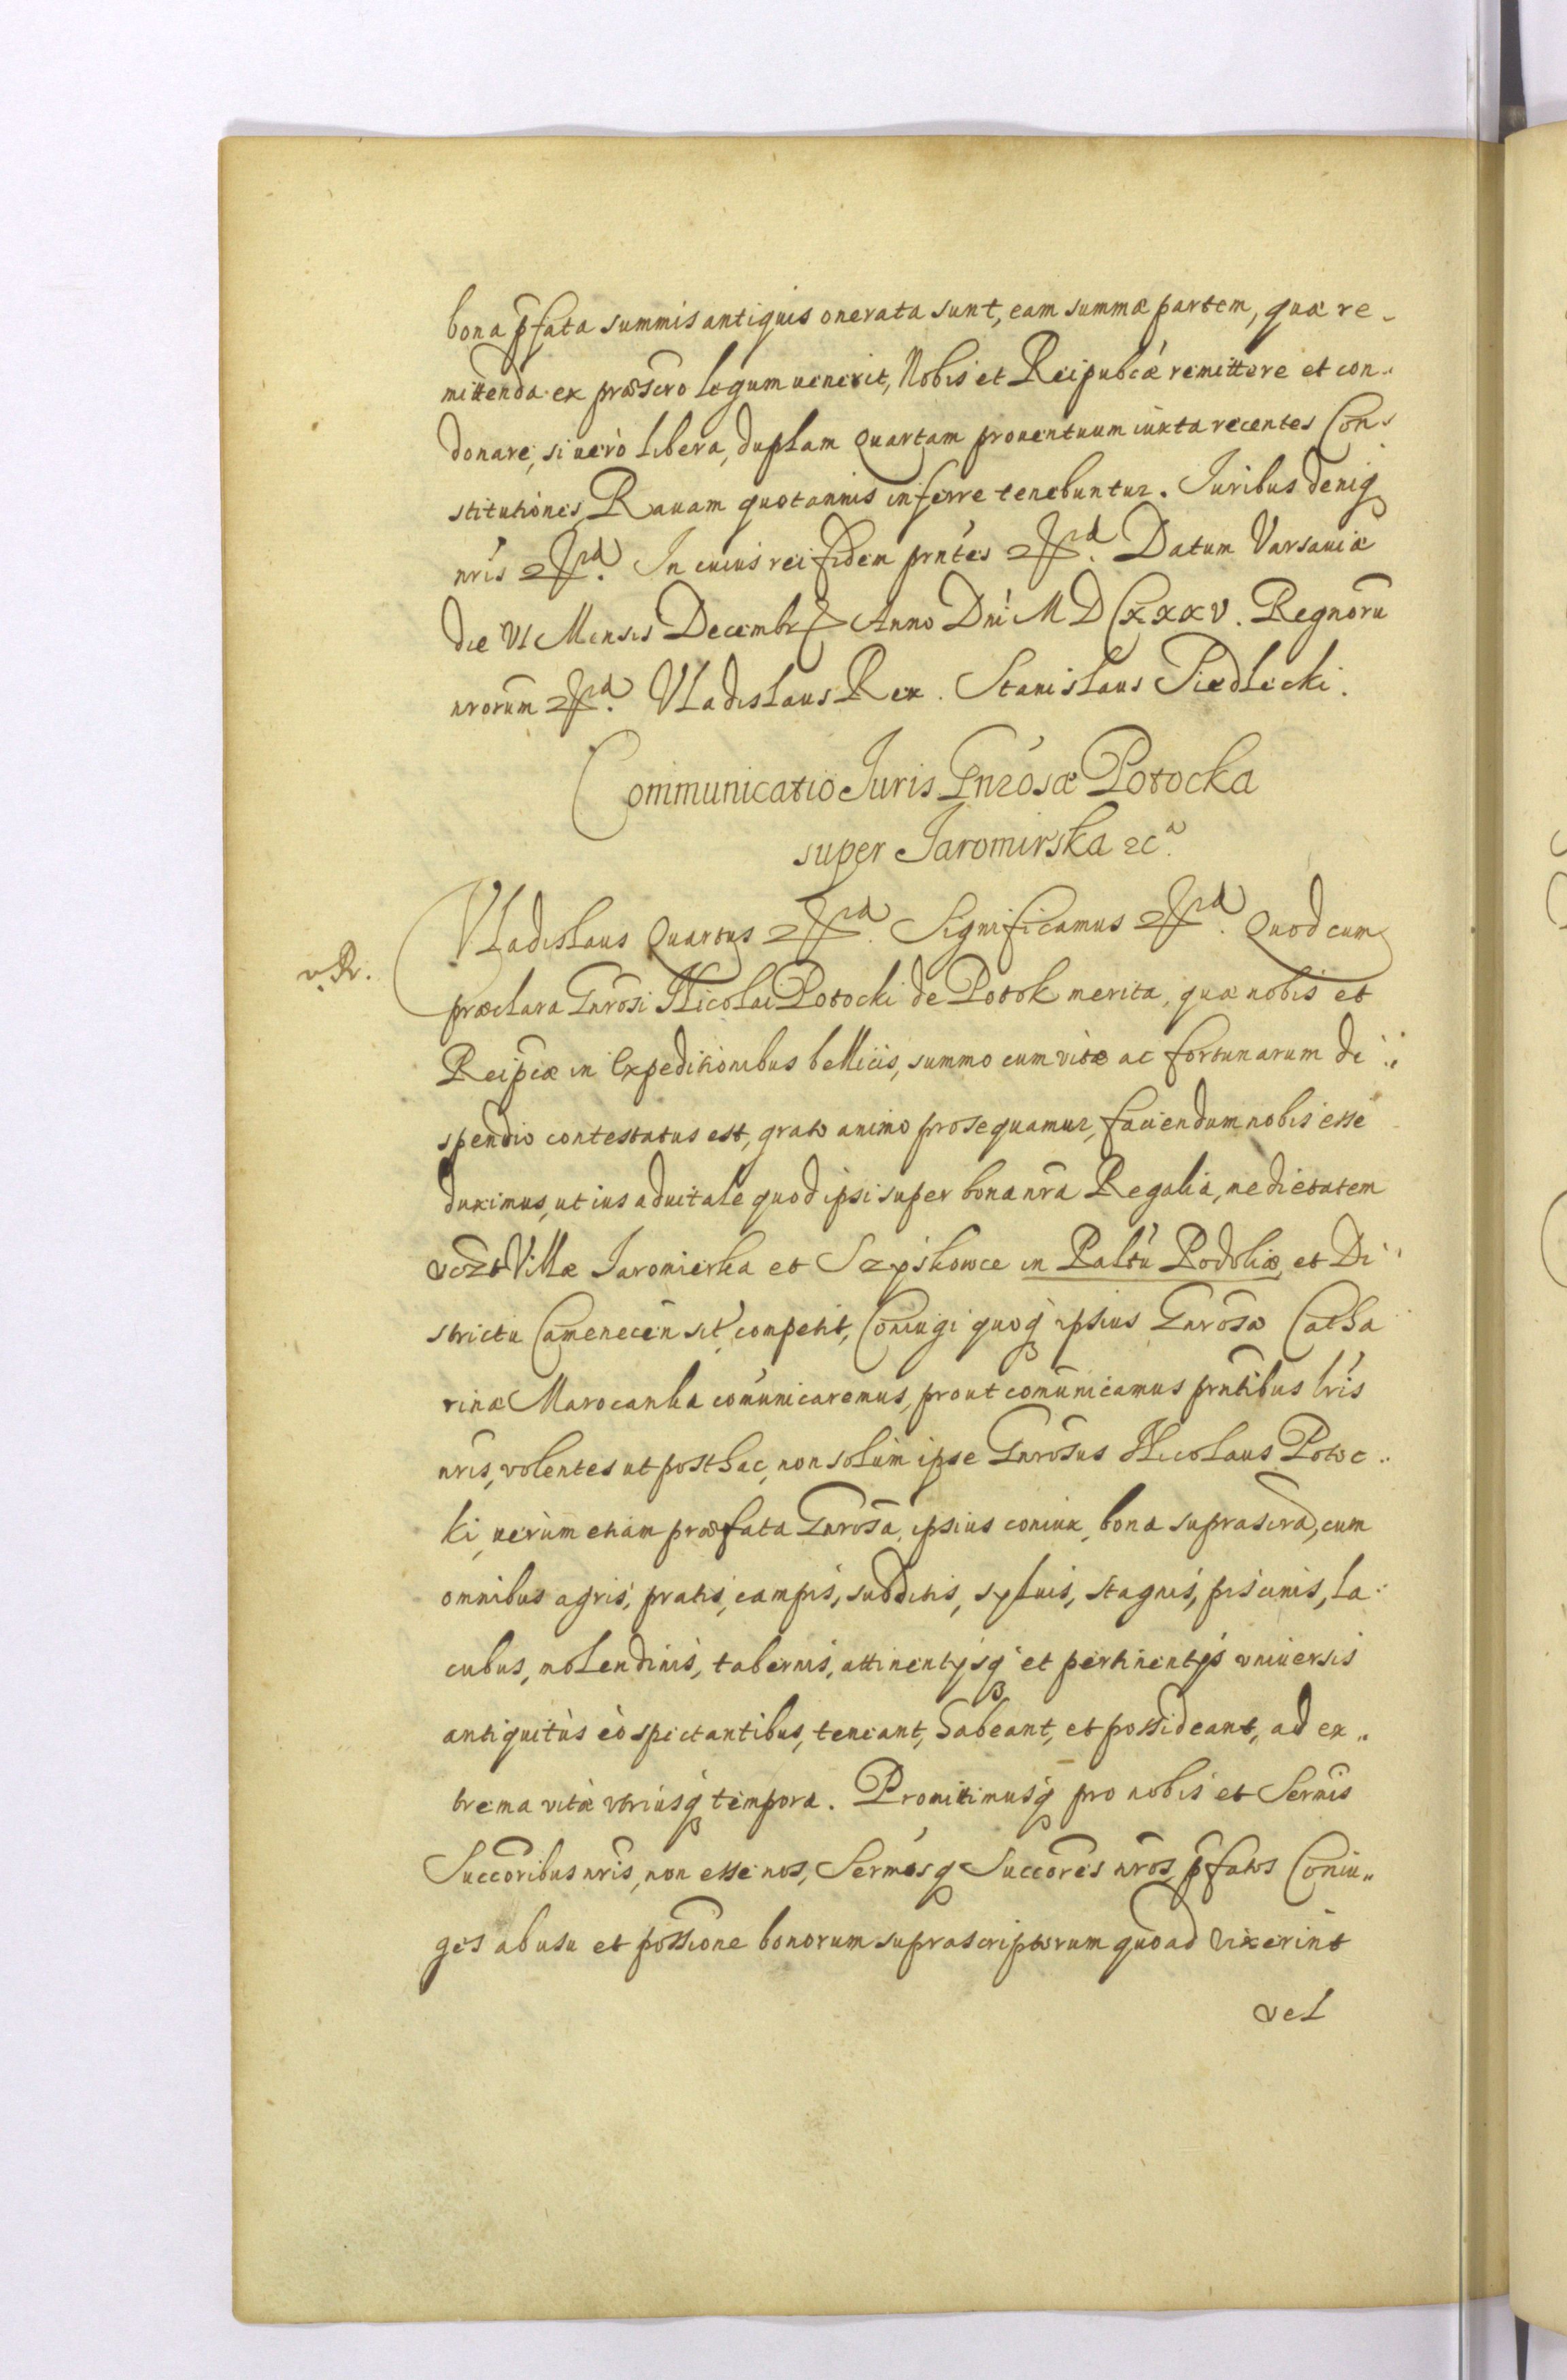 bona p̄fata summis antiquis onerata sunt, eam summæ partem, quæ re-
mittenda ex præscrō legum uenerit, Nobis et Reipubcæ remittere et con-
donare, si uerò libera, duplam quartam prouentuum iuxta recentes Con-
stitutiones Rauam quotannis inferre tenebuntur. Iuribus deniq
nris etc. In cuius rei fidem prntes etc. Datum Varsauiæ
die VI Mensis Decembr Anno Dni MDCXXXV. Regnorū
nrorum etc. Vladislaus Rex. Stanislaus Siedlecki.
Communicatio Iuris Gnrosæ Potocka
super Jaromirska etc.
v. R.
Vladislaus Quartus etc. Significamus etc. Quod cum
præclara Gnrosi Nicolai Potocki de Potok merita, quæ nobis et
Reipcæ in expeditionibus bellicis, summo cum vitæ ac fortunarum di-
spendio contestatus est, grato animo prosequamur, faciendum nobis esse
duximus, ut ius aduitale quod ipsi super bona nra Regalia, medietatem
Villæ Jaromierka et Szpikowce in Paltu Podoliæ, et Di-
strictu Camenecen sit, competit, Coniugi quoq ipsius Gnrosæ Catha
rinæ Marocanka comūnicaremus, prout comūnicamus prntibus lris
nris, volentes ut posthac, non solùm ipse Gnrosus Nicolaus Potoc-
ki, uerùm etiam præfata Gnrosa, ipsius coniux, bona suprascra, cum
omnibus agris, pratis, campis, subditis, syluis, stagnis, piscinis, la-
cubus, molendinis, tabernis, attinentysq et pertinentys vniuersis
antiquitùs eò spectantibus, teneant, habeant, et possideant, ad ex-
trema vitæ vtriusq tempora. Promitimusq pro nobis et Sermis
Succoribus nris, non esse nos, Sermosq Succores nros, p̄fatos Coniu-
ges ab usu et possione bonorum suprascriptorum quoad vixerint
vel